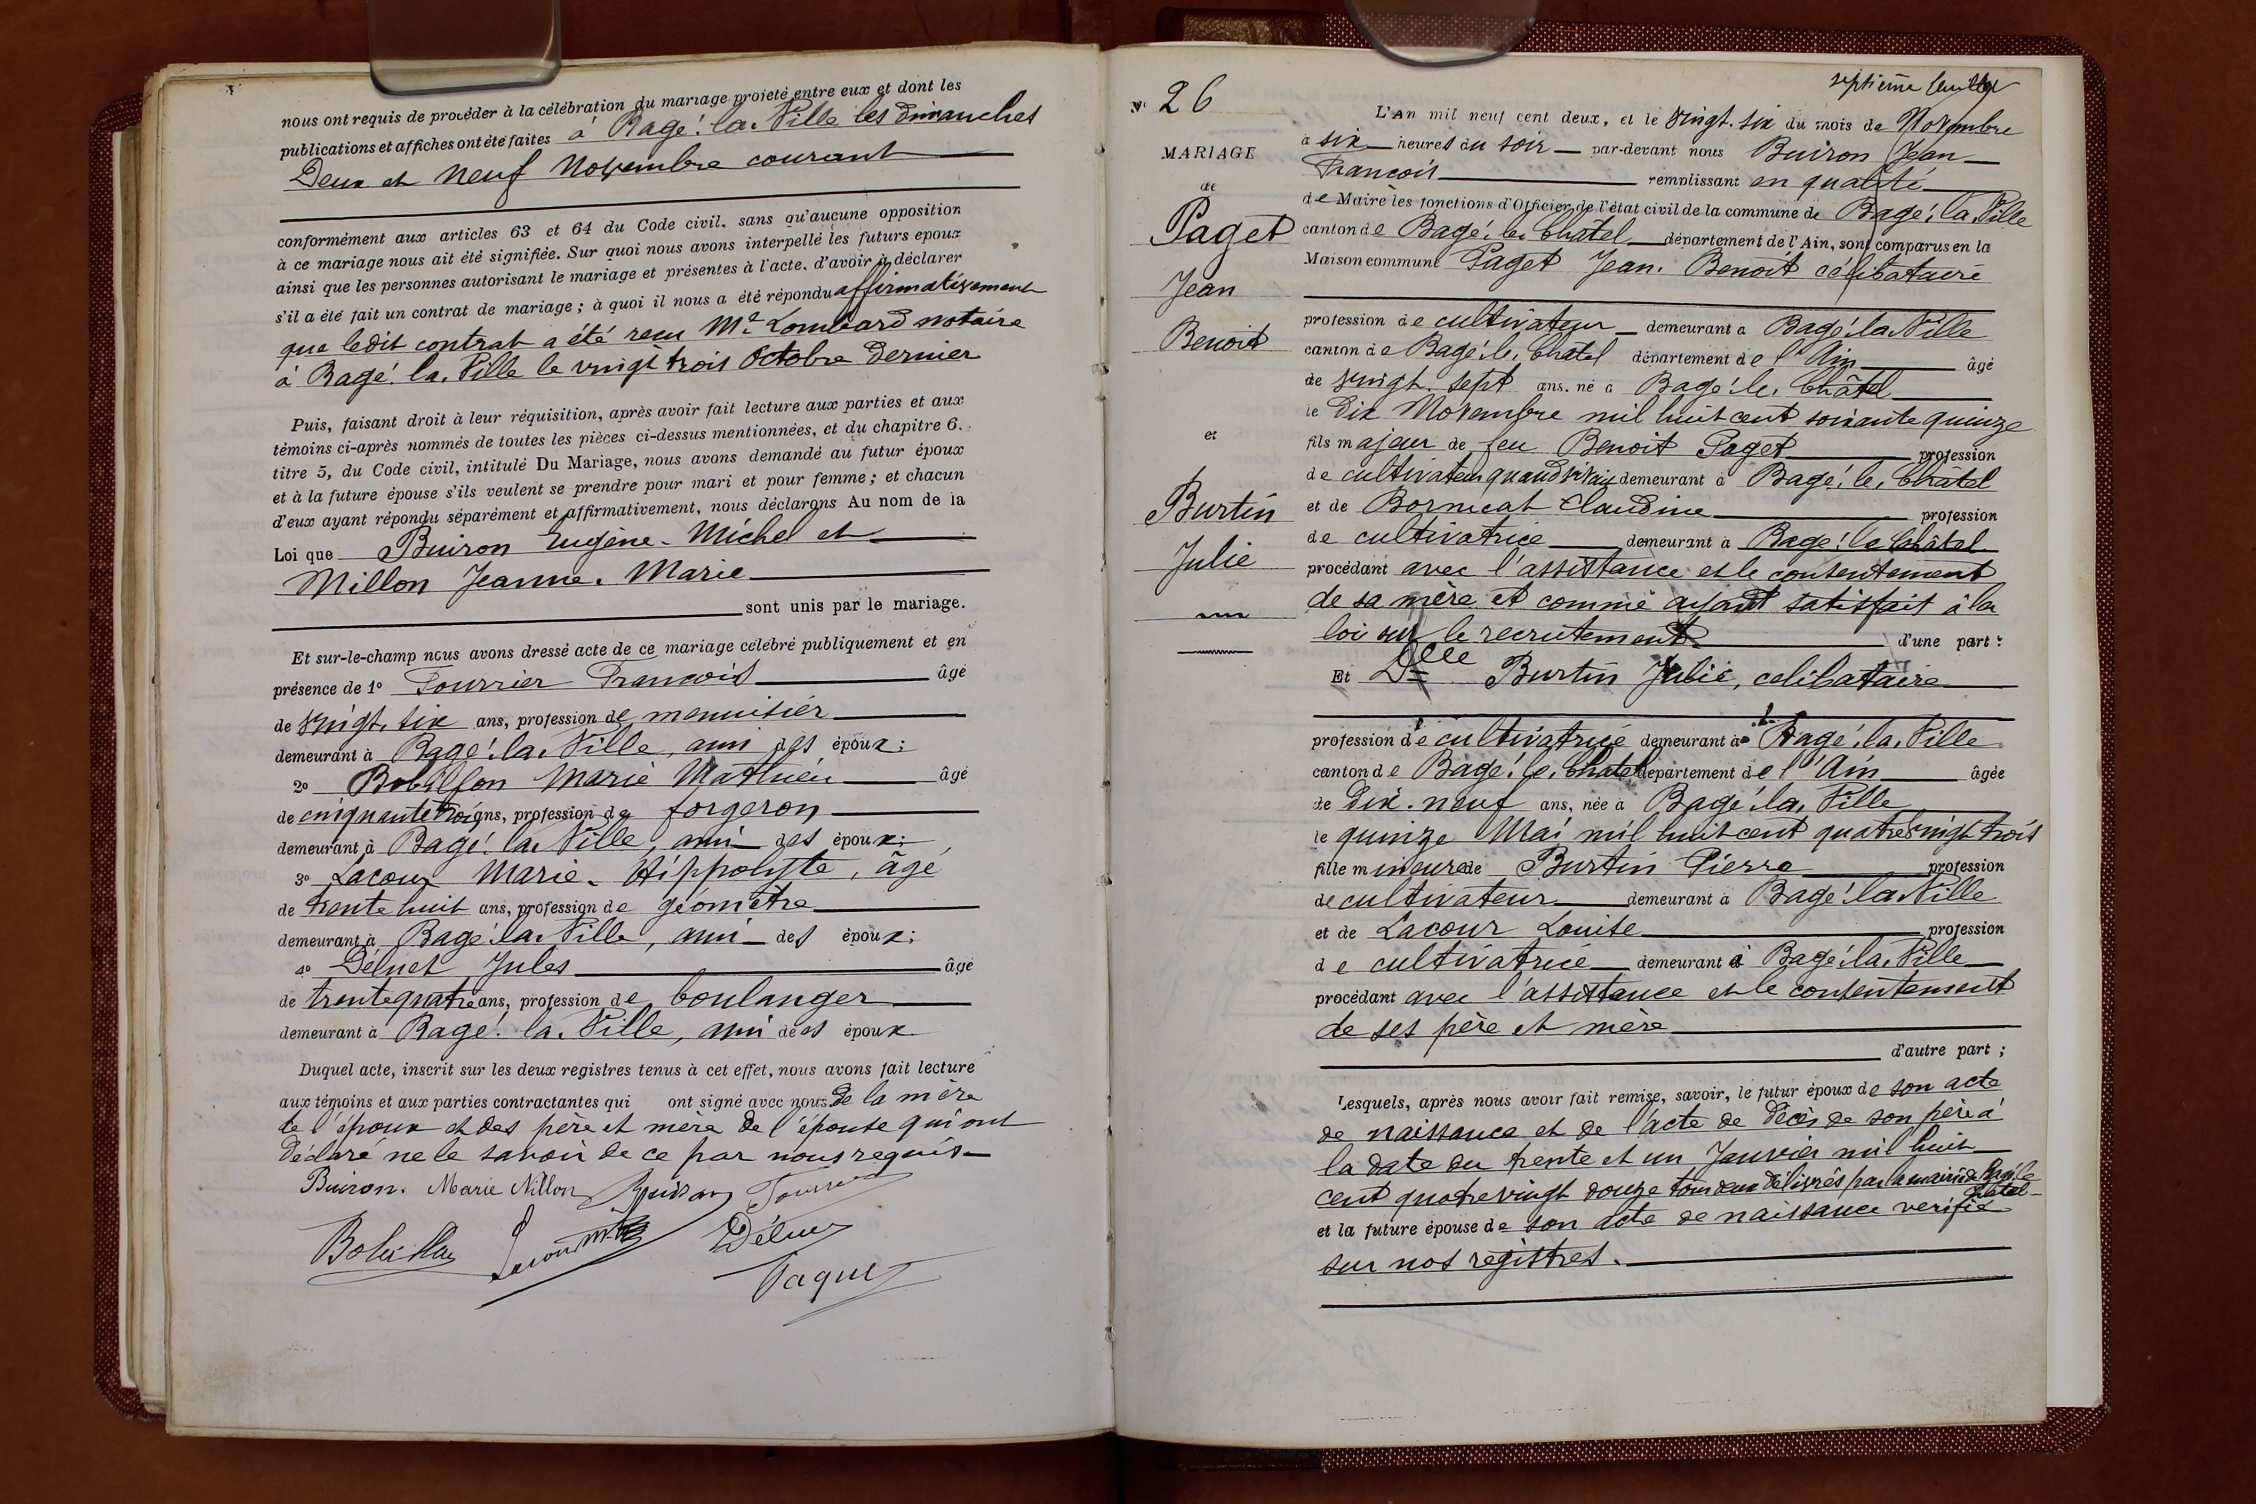 nous ont requis de procéder à la célébration du mariage projeté entre eux et dont les
publications et affiches ont été faites à Bagé-la-Ville les dimanches
Deux et neuf Novembre courant
conformément aux articles 63 et 64 du Code civil, sans qu'aucune opposition
à ce mariage nous ait été signifiée. Sur quoi nous avons interpellé les futurs époux
ainsi que les personnes autorisant le mariage et présentes à l'acte, d'avoir à déclarer
s'il a été fait un contrat de mariage ; à quoi il nous a été répondu affirmativement
que ledit contrat a été reçu Me Lombard notaire
à Bagé-la-Ville le vingt trois Octobre dernier
Puis, faisant droit à leur réquisition, après avoir fait lecture aux parties et aux
témoins ci-après nommés de toutes les pièces ci-dessus mentionnées, et du chapitre 6,
titre 5, du Code civil, intitulé Du Mariage, nous avons demandé au futur époux
et à la future épouse s'ils veulent se prendre pour mari et pour femme ; et chacun
d'eux ayant répondu séparément et affirmativement, nous déclarons Au nom de la
Loi que Buiron Eugène-Michel et
Millon Jeanne-Marie
sont unis par le mariage.
Et sur-le-champ nous avons dressé acte de ce mariage célébré publiquement et en
présence de 1° Fourrier François âgé
de vingt-six ans, profession de menuisier
demeurant à Bagé-la-Ville, ami des époux ;
2° Bobillon Marie Mathieu âgé
de cinquante trois ans, profession de forgeron
demeurant à Bagé-la-Ville, ami des époux ;
3° Lacour Marie-Hippolyte, âgé
de trente huit ans, profession de géomètre
demeurant à Bagé-la-Ville, ami des époux ;
4° Déluet Jules âgé
de trente quatre ans, profession de boulanger
demeurant à Bagé-la-Ville, ami des époux.
Duquel acte, inscrit sur les deux registres tenus à cet effet, nous avons fait lecture
aux témoins et aux parties contractantes qui ont signé avec nous de la mère
de l'époux et des père et mère de l'épouse qui ont
déclaré ne le savoir de ce par nous requis
Buiron. Marie Millon Buiron Fourrier
Bobillon Lacour M.H. Déluet
Paquet
septième feuillet
N° 26
MARIAGE
de
Paget
Jean
Benoit
et
Burtin
Julie
L'An mil neuf cent deux, et le vingt-six du mois de Novembre
à six heures du soir par-devant nous Buiron Jean
François remplissant en qualité
de Maire les fonctions d'Officier de l'état civil de la commune de Bagé-la-Ville
canton de Bagé-le-Châtel département de l'Ain, sont comparus en la
Maison commune Paget Jean-Benoît célibataire
profession de cultivateur demeurant à Bagé-la-Ville
canton de Bagé-le-Châtel département de l'Ain âgé
de vingt-sept ans, né à Bagé-le-Châtel
le dix Novembre mil huit cent soixante quinze
fils majeur de feu Benoit Paget profession
de cultivateur quand vivait demeurant à Bagé-le-Châtel
et de Bornicat Claudine profession
de cultivatrice demeurant à Bagé-le-Châtel
procédant avec l'assistance et le consentement
de sa mère et comme ayant satisfait à la
loi sur le recrutement d'une part ;
Et Delle Burtin Julie, célibataire
profession de cultivatrice demeurant à Bagé-la-Ville
canton de Bagé-le-Châtel département de l'Ain âgée
de dix-neuf ans, née à Bagé-la-Ville
le quinze Mai mil huit cent quatre vingt trois
fille mineure de Burtin Pierre profession
de cultivateur demeurant à Bagé-la-Ville
et de Lacour Louise profession
de cultivatrice demeurant à Bagé-la-Ville
procédant avec l'assistance et le consentement
de ses père et mère
d'autre part ;
Lesquels, après nous avoir fait remise, savoir, le futur époux de son acte
de naissance et de l'acte de décès de son père à
la date du trente et un Janvier mil huit
cent quatre vingt douze tous deux délivrés par la mairie de Bagé le
Châtel
et la future épouse de son acte de naissance vérifié
sur nos registres.